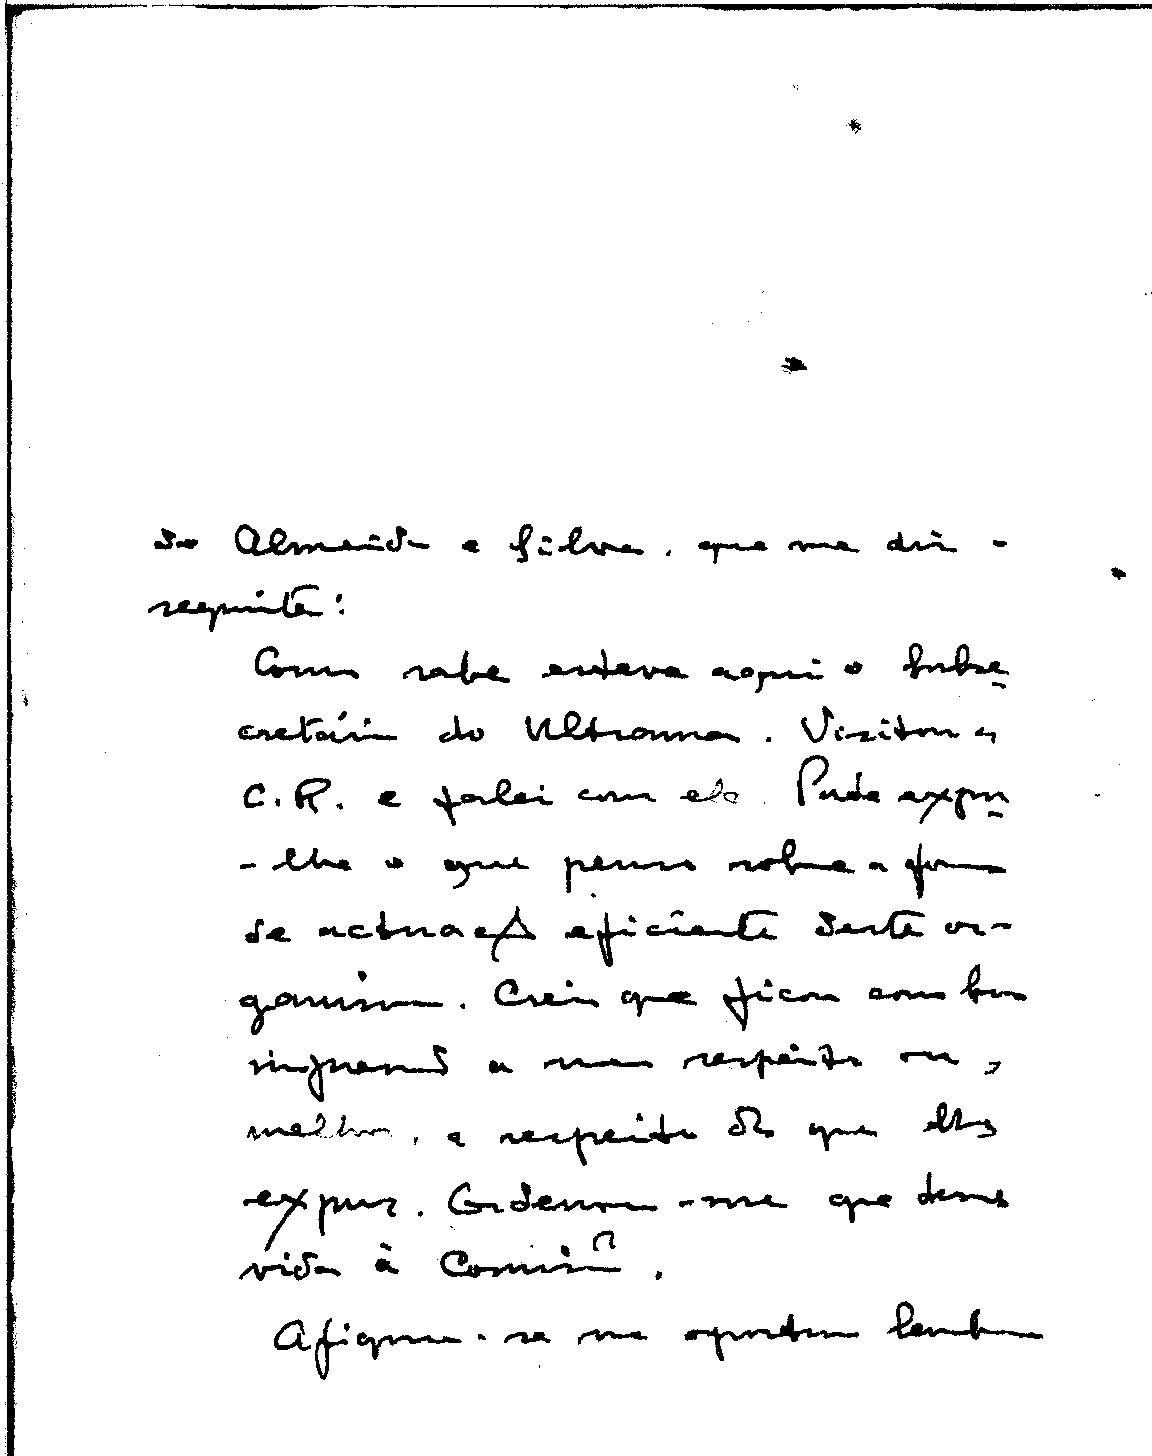 do Almeida e Silva, que me diz o -
seguinte:
Como sabe esteve aqui o Subse
cretário do Ultramar. Visitou a
C.R. e falei com ele. Pude expor
-lhe o que penso sobre a forma
de actuação eficiente deste or-
ganismo. Creio que ficou com boa
impressão a meu respeito ou,
melhor, a respeito do que lhe
expuz. Ordenou-me que desse
vida à Comissão.
Afigura-se-me oportuno lembrar